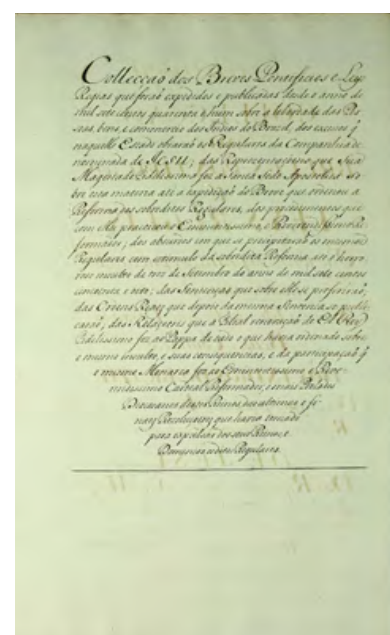 Collecçaõ dos Breves Pontificios e Leys
Regias que foraõ expedidos e publicadas desde o anno de
mil sete centos quarenta e hum sobre a liberdade das Pes
soas, bens, e commercio dos Indios do Brazil, dos excessos q̃
naquelle Estado obraraõ os Regulares da Companhia de
nominada de JESU; das Representaçoens que Sua
Magestade Fidelissima fez a Santa Sede Apostolica so
bre esta materia até a expediçaõ do Breve que ordenou a
Reforma dos sobreditos Regulares, dos procedimentos que
com elles practicou o Eminentissimo, e Reverendissimo Re
formador; dos absurdos em que se precipitaraõ os mesmos
Regulares com o estimulo da sobredita Reforma até o horro
roso insulto de tres de Setembro do anno de mil sete centos
cincoenta e oito; das Sentenças que sobre elle se proferiraõ,
das Ordens Reaes que depois da mesma Sentença se publi
caraõ, das Relaçoens que a filial veneraçaõ de El Rey
Fidelissimo fez ao Pappa de tudo o que havia ordenado sobre
o mesmo insulto, e suas consequencias, e da participaçaõ q̃
o mesmo Monarca fez ao Eminentissimo e Reve
rendissimo Cardial Reformador, e mais Prelados
Diocesanos destes Reinos das ultimas e fi
naes Resoluçoens que havia tomado
para expulsar dos seus Reinos e
Dominios os ditos Regulares.